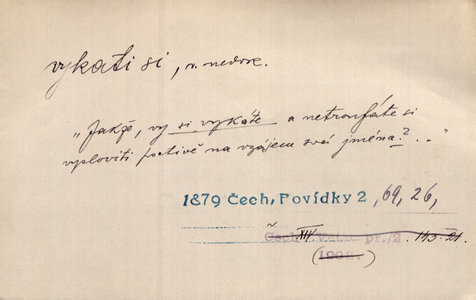 vykati si, v. nedok.
"Jakže, vy si vykáte a netroufáte si
vysloviti poctivě na vzájem svá jména? . ."
1879 Čech, Povídky 2, 69, 26,
XIII pr./2. 143. 21.
(1908.)